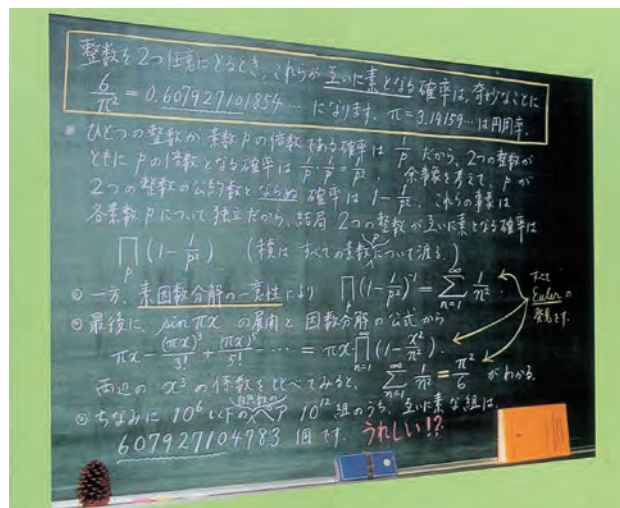 整数を2つ任意にとるとき、これらが互いに素となる確率は、奇妙なことに
6/π² = 0.607927101854… になります. π = 3.14159… は円周率.
ひとつの整数が素数 p の倍数である確率は 1/p だから、2つの整数が
ともに p の倍数となる確率は 1/p・1/p = 1/p² 余事象を考えて、p が
2つの整数の公約数とならぬ確率は 1 - 1/p². これらの事象は
各素数 p について独立だから、結局 2つの整数が互いに素となる確率は
∏_p (1 - 1/p²) (積はすべての素数 p について渡る.)
◎ 一方、素因数分解の一意性により ∏_p (1 - 1/p²)⁻¹ = ∑_{n=1}^∞ 1/n².
すべて
Euler の
発見です.
◎ 最後に、sin πx の展開と因数分解の公式から
πx - (πx)³/3! + (πx)⁵/5! - … = πx ∏_{n=1}^∞ (1 - x²/n²).
両辺の x³ の係数を比べてみると、 ∑_{n=1}^∞ 1/n² = π²/6 がわかる.
◎ ちなみに 10⁶ 以下の自然数のペア 10¹² 組のうち、互いに素な組は、
607927104783 個です. うれしい!?